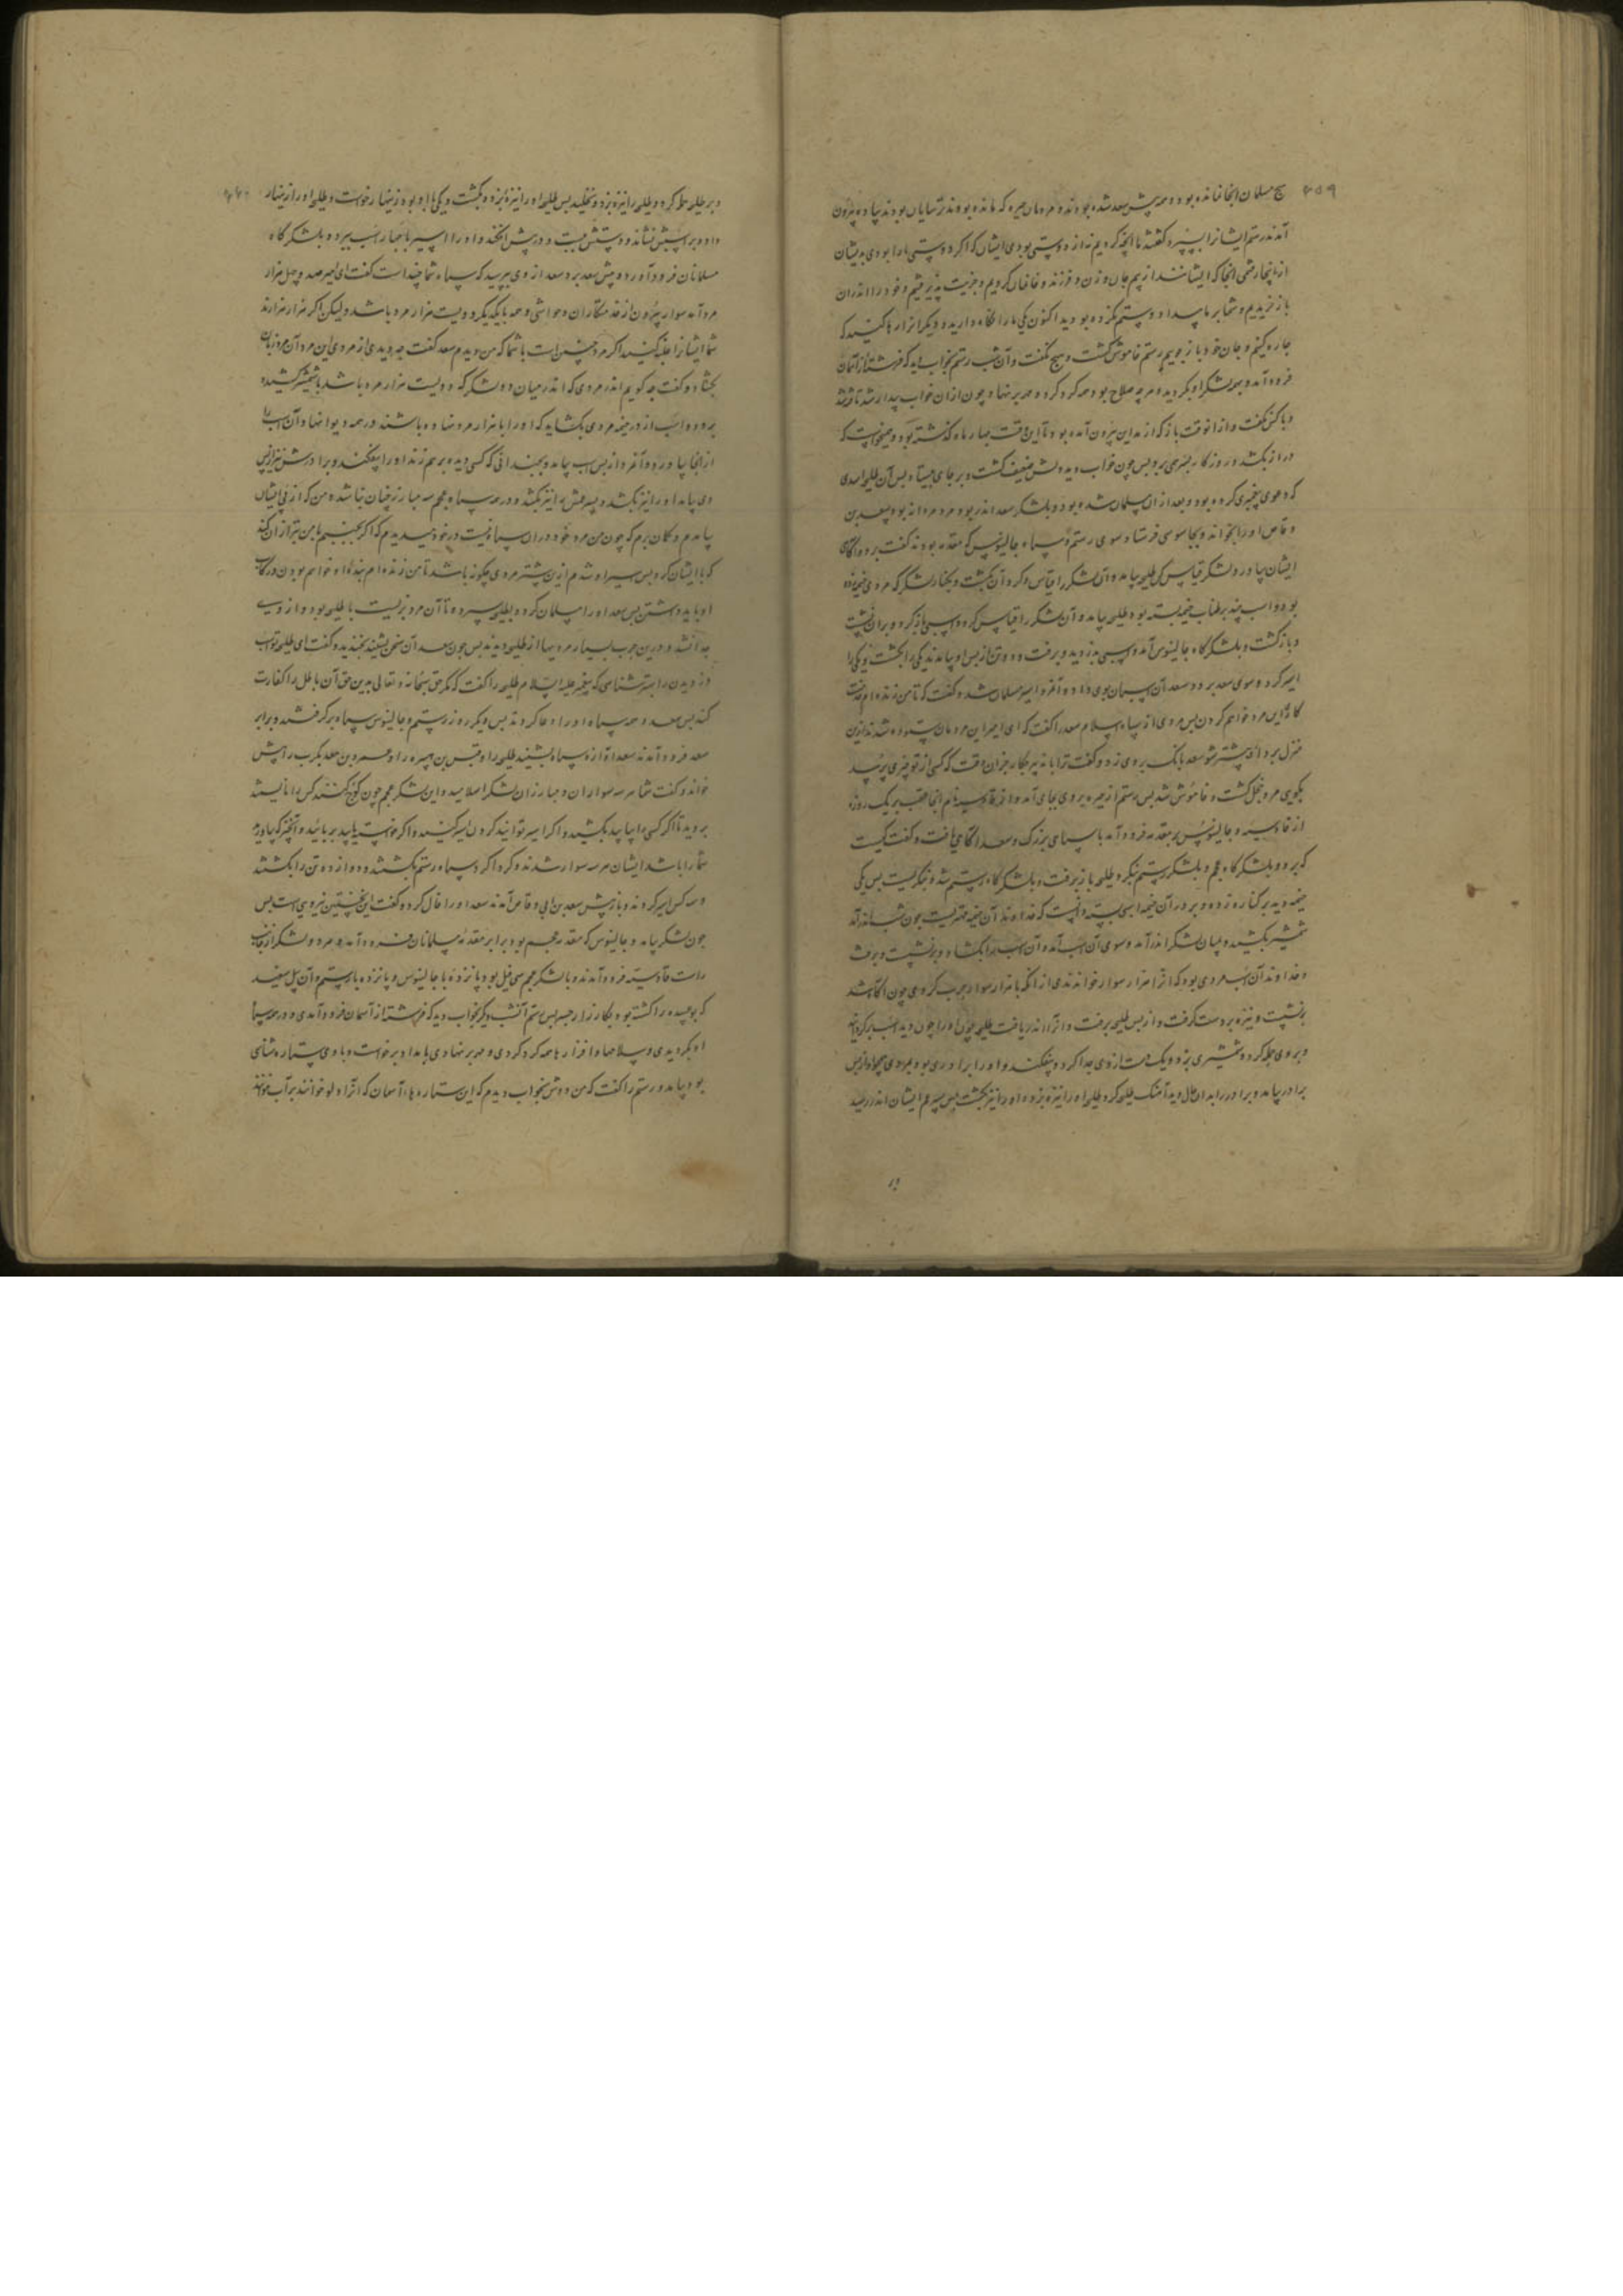 ۴۵۹
هیچ مسلمان انجا نمانده بود و همه پیش سعد شده بودند و مردمان حیره که مانده بودند ترسایان بودند پیاده بیرون
آمدند رستم ایشانرا بپرسید و کفتند ما انچه کردیم نه از دوستی بود ی ایشان که اکر دوستی ما را بودی بدیشان
از اینجا رفتمی انجا که ایشانند از بیم جان و زن و فرزند و خانمان کردیم و جزیت پذیرفتیم و خود را اندران
باز خریدیم و شما بر ما بیداد و ستم کرده بودید اکنون یکی ما را نکاه دارید و دیکر انرا رها کنید که
چاره کنیم و جان خود باز جوییم رستم خاموش کشت و هیچ نکفت و آن شب رستم بخواب دید که فرشته از آسمان
فرود آمد و بهمه لشکر او بکردید و هر چه سلاح بود همه کرد کرد و مهر بر نهاد چون از ان خواب بیدار شد
و با کس نکفت و از انوقت باز که از مداین بیرون آمده بود تا این وقت چهار ماه کذشته بود و میخواست که
دراز بکشد و روزکار بسر می برد پس چون خواب دید دلش ضعیف کشت و بر جای بیستاد پس آن طلیحه اسدی
که دعوی پیغمبری کرده بود و بعد از ان مسلمان شده بود و بلشکر سعد اندر بود و مرد مردانه بود سعد بن
وقاص او را بخواند و بجاسوسی فرستاد سوی رستم و سپاه جالینوس که مقدمه بودند کفت برو و اکاهی
ایشان بیاور و لشکر قیاس کن طلیحه بیامد و آن لشکر را قیاس کرد و آن بکشت و بکنار لشکر که مردی خیمه زده
بود و اسب چند بر طناب خیمه بسته بود طلیحه بیامد و آن لشکر را قیاس کرد و اسبی باز کرد و بران نشست
و باز کشت و بلشکر کاه جالینوس آمد و اسبی بدزدید و برفت و دو تن از پس او بیامدند یکی را بکشت و یکی را
اسیر کرد و سوی سعد برد و سعد آن اسبان بوی داد و آخر اسیر مسلمان شد و کفت که تا من زنده ام خدمت
کار این مرد خواهم کردن پس مردی از سپاه اسلام سعد را کفت که ای امیر این مردمان ستوده شدند ازین
منزل بردار و پیشتر شو سعد بانک بر وی زد و کفت ترا با تدبیر چکار جز ان وقت که کسی از تو چیزی پرسد
بکوی مرد خجل کشت و خاموش شد پس رستم از حیره بر وی بجای آمد و از قادسیه نام انجا عقب بر یک روزه
از قادسیه و جالینوس بر مقدمه فرود آمد با سپاهی بزرک و سعد اکاهی یافت و کفت کیست
که برود بلشکر کاه عجم و بلشکر رستم نکرد طلیحه باز برفت و بلشکر کاه رستم شد و بنکریست پس یکی
خیمه دید بر کناره زده و بر در آن خیمه اسبی بسته دانست که خداوند آن خیمه مهتریست چون شب اندر آمد
شمشیر بکشید و میان لشکر اندر آمد و سوی آن اسب آمد و آن اسب را بکشاد و بر نشست و برفت
و خداوند آن اسب مردی بود که انرا هزار سوار خواندندی از انکه با هزار سوار حرب کردی چون اکاه شد
برنشست و نیزه بر دست کرفت و از پس طلیحه برفت و انرا اندر یافت طلیحه چون او را دید اسب بر کردانید
و بر وی حمله کرد و شمشیری بزد و یک دست از وی جدا کرد و بیفکند و او را برادری بود بمردی همچو او از پس
برادر بیامد و برادر را بدان حال دید آهنک طلیحه کرد طلیحه او را نیزه بزد و او را نیز بکشت پس پسر عم ایشان اندر رسید
۴۶۰
و بر طلیحه حمله کرد و طلیحه را نیزه بزد و نخلید پس طلیحه او را نیزه بزد و بکشت و یکی با او بود زینهار خواست و طلیحه او را زینهار
داد و بر اسبش نشاند و دستش ببست و در پیش افکند و او را اسیر با چهار اسب ببرد و بلشکر کاه
مسلمانان فرود آورد و پیش سعد برد سعد از وی بپرسید که سپاه شما چند است کفت ای امیر صد و چهل هزار
مرد آمد سوار بیرون از خدمتکاران و حواشی و همه با یکدیکر دویست هزار مرد باشد ولیکن اکر هزار هزارند
شما ایشانرا غلبه کنید اکر مرد چنین است با شما که من دیدم سعد کفت چه دیدی از مردی این مرد آن مرد زبان
بکشاد و کفت چه کویم اندر مردی که اندر میان دو لشکر که دویست هزار مرد باشد با شمشیر کشیده
برود و اسب از در خیمه مردی بکشاید که او را با هزار مرد نهاده باشند و همه دیوانها و آن اسب را
از انجا بیاورد و آخر و از پس اسب بیامد و بچندانی که کسی دیده بر هم زند او را بیفکند و برادرش نیز از پس
وی بیامد او را نیز بکشد و پسر عمش را نیز بکشد و در همه سپاه عجم سه مبارز چنان نباشد و من که از پی ایشان
بیامدم و کمان برم که چون من مرد خود در ان سپاه نیست در خود ندیدم که اکر بجنبیم با من بتر از ان کند
که با ایشان کرد پس اسیر او شدم از ین بیشتر مردی چکونه باشد تا من زنده ام بنده او خواهم بودن و رکاب
او باید داشتن پس سعد او را مسلمان کرد و بطلیحه سپرد و تا آن مرد بزیست با طلیحه بود و از وی
جدا نشد و درین حرب بسیار مردیها از طلیحه دیدند پس چون سعد آن سخن بشنید بخندید و کفت ای طلیحه تو اسب
دزدیدن را بهتر شناسی که پیغمبر علیه السلام طلیحه را کفت که مکر حق سبحانه و تعالی بدین حق آن باطل را کفارت
کند پس سعد و همه سپاه او را دعا کردند پس دیکر روز رستم و جالینوس سپاه بر کرفتند و برابر
سعد فرود آمدند سعد آوازه سپاه بشنید طلیحه را و قیس بن هبیره را و عمرو بن معدیکرب را پیش
خواند و کفت شما هر سه سواران و مبارزان لشکر اسلامید و این لشکر عجم چون کوچ کنند کس را نایستد
بروید تا اکر کسی را بیابید بکشید و اکر اسیر توانید کردن اسیر کنید و اکر خواسته یابید بربایید و آنچه که بیاورید
شما را باشد ایشان هر سه سوار شدند و کرداکرد سپاه رستم بکشتند و دوازده تن را بکشتند
و سه کس اسیر کردند و باز پیش سعد بن ابی وقاص آمدند سعد او را فال کرد و کفت این نخستین فیروزی است پس
چون لشکر بیامد و جالینوس که مقدمه عجم بود برابر مقدمه مسلمانان فرود آمد و هر دو لشکر از جانب
راست قادسیه فرود آمدند و با لشکر عجم سی فیل بود پانزده با جالینوس و پانزده با رستم و آن پیل سفید
که بوعبیده را کشته بود بکارزار جسر پس رستم آنشب دیکر بخواب دید که فرشته از آسمان فرود آمدی و در همه سپاه
او بکردیدی و سلاحها و افزارها همه کرد کردی و مهر بر نهادی بامداد برخواست و با وی ستاره شناسی
بود بیامد و رستم را کفت که من دوش بخواب دیدم که این ستاره ها از آسمان که انرا دلو خوانند بر آب